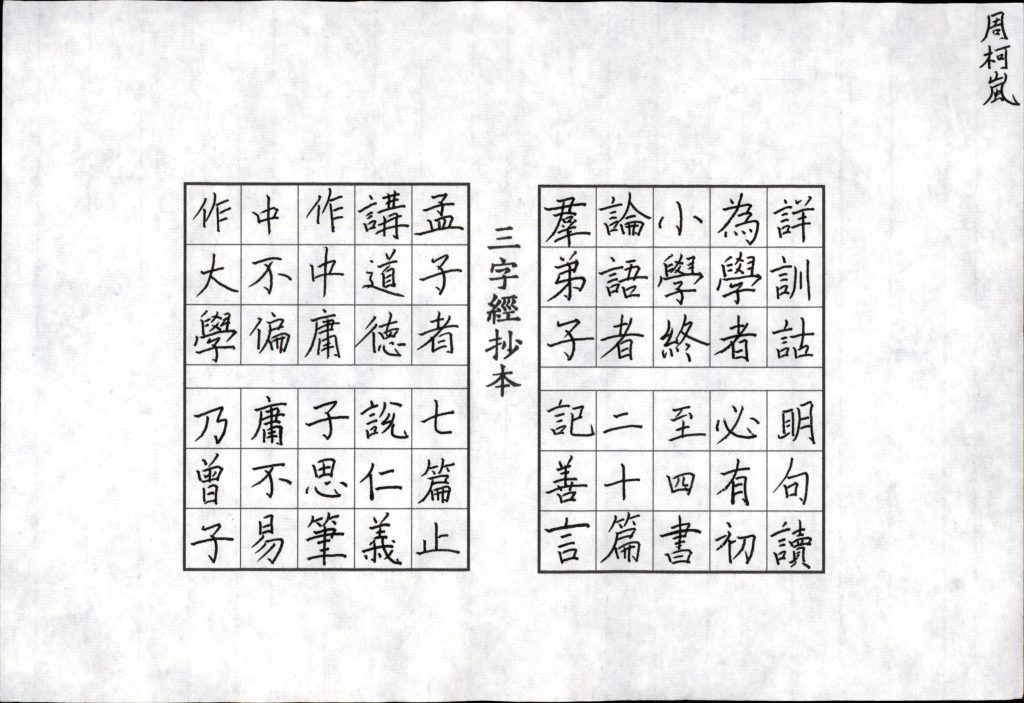 周柯嵐
詳訓詁 明句讀
為學者 必有初
小學終 至四書
論語者 二十篇
羣弟子 記善言
三字經抄本
孟子者 七篇止
講道德 說仁義
作中庸 子思筆
中不偏 庸不易
作大學 乃曾子